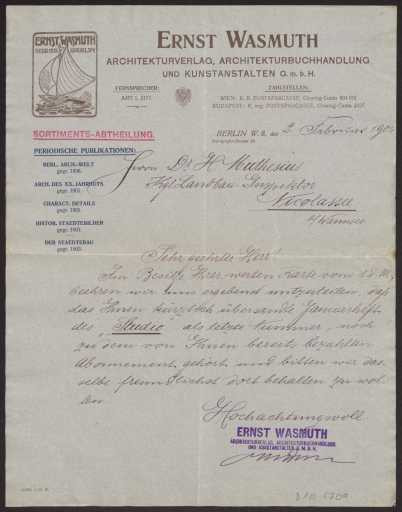 ERNST WASMUTH
ERNST WASMUTH
ARCHITEKTURVERLAG, ARCHITEKTURBUCHHANDLUNG
UND KUNSTANSTALTEN G. m. b. H.
FERNSPRECHER:
AMT I. 2177.
ZAHLSTELLEN:
WIEN: K. K. POSTSPARCASSE, Clearing-Conto
BUDAPEST: K. ung. POSTSPARCASSE, Clearing-Conto
SORTIMENTS-ABTHEILUNG.
BERLIN W. 8, den 2. Februar
PERIODISCHE PUBLIKATIONEN:
BERL. ARCH.-WELT
gegr. 1898.
ARCH. DES XX. JAHRHDTS
gegr. 1901.
CHARACT. DETAILS
gegr. 1901.
HISTOR. STAEDTEBILDER
gegr. 1901.
DER STAEDTEBAU
gegr. 1903.
Herrn Dr. H. Muthesius
Kgl. Landbau-Inspektor
Nicolassee
b/Wannsee
Sehr geehrter Herr!
Im Besitz Ihrer werten Karte vom
beehren wir uns ergebenst mitzuteilen, daß
das Ihnen kürzlich übersandte Januarheft
des „Studio" als letzte Nummer, noch
zu dem von Ihnen bereits bezahlten
Abonnement gehört und bitten wir das-
selbe freundlichst dort behalten zu wol-
len.
Hochachtungsvoll
ERNST WASMUTH
ARCHITEKTURVERLAG, ARCHITEKTURBUCHHANDLUNG
UND KUNSTANSTALTEN G. M. B. H.